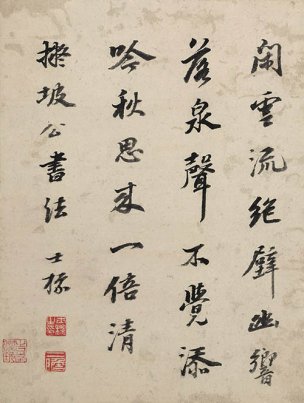 閒雲流絶壁幽響
落泉聲不覺添
吟秋思來一倍清
擬坡公書法 士標